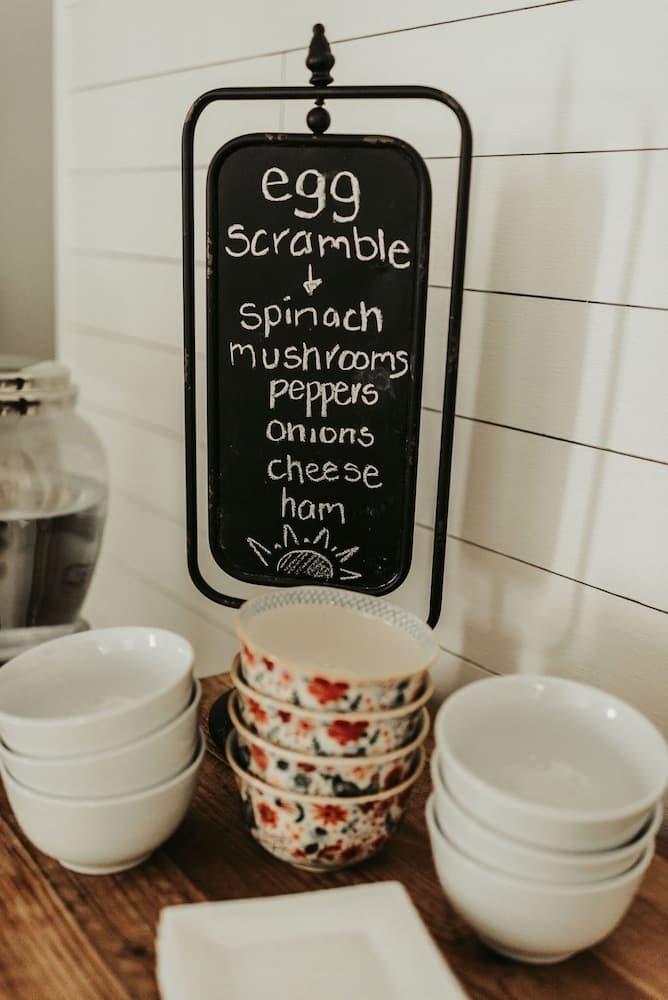 egg
scramble
spinach
mushrooms
peppers
onions
cheese
ham